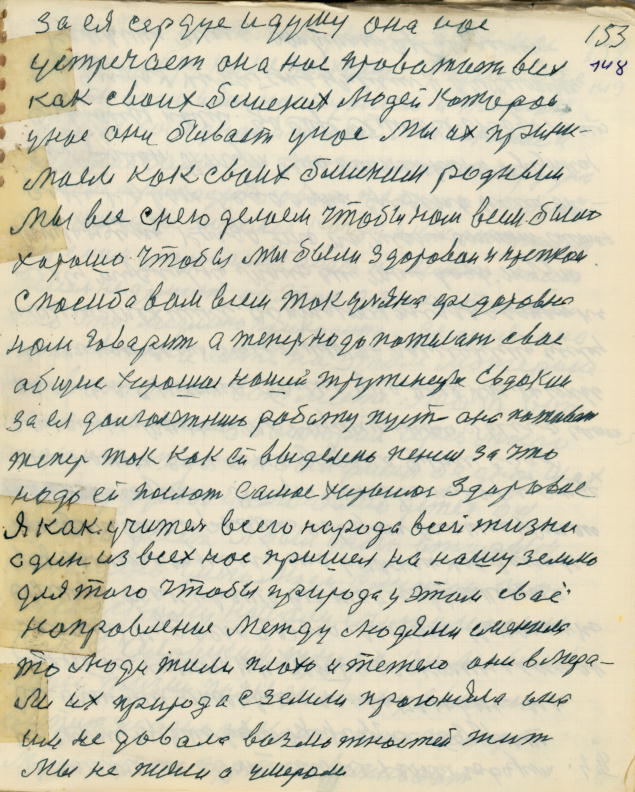 153
148
за ея сердце и душу она нас
устречает она нас проважает всех
как своих близких людей каторои
у нас они бывает у нас мы их прини-
маем как своих близким родным
мы все снего делаем чтобы нам всем было
харашо чтобы мы были здоровои и крепкои
спосиба вам всем так ульяна федоровна
нам говарит а теперь нодо пожелат свае
абщие харошае нашей труженеце Евдокии
за ея долголетнию работу пуст она поживат
тепер так как ей выделено пенси за что
надо ей пожелат самое харошое здаровие
Я как учител всего народа всей жизни
один из всех нас пришел на нашу землю
для того чтобы природа у этом сваё
направление между людями сменила
то люди жили плохо и тежело они вмера-
ли их природа с земли прагоняла она
им не давала вазможностей жит
мы не жили а умерали